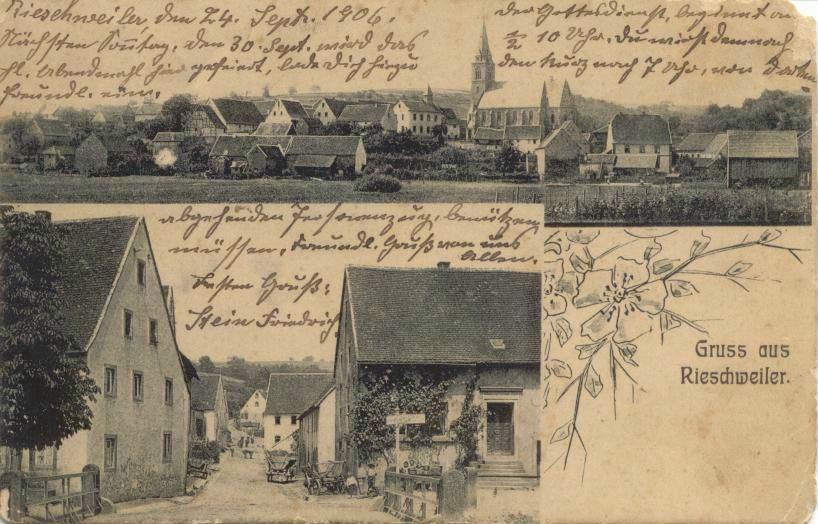 Rieschweiler, den 24. Septr. 1906.
Nächsten Sontag, den 30. Sept. wird das
hl. Abendmahl hier gefeiert, lade Dich hierzu
freundl. ein,
der Gottesdienst, beginnt um
½ 10 Uhr. Du wirst demnach
den kurz nach 7 Uhr, von dorten
abgehenden Personenzug, benützen
müssen, Freundl. Gruß von uns
Allen.
Besten Gruß:
Stein Friedrich
Gruss aus
Rieschweiler.